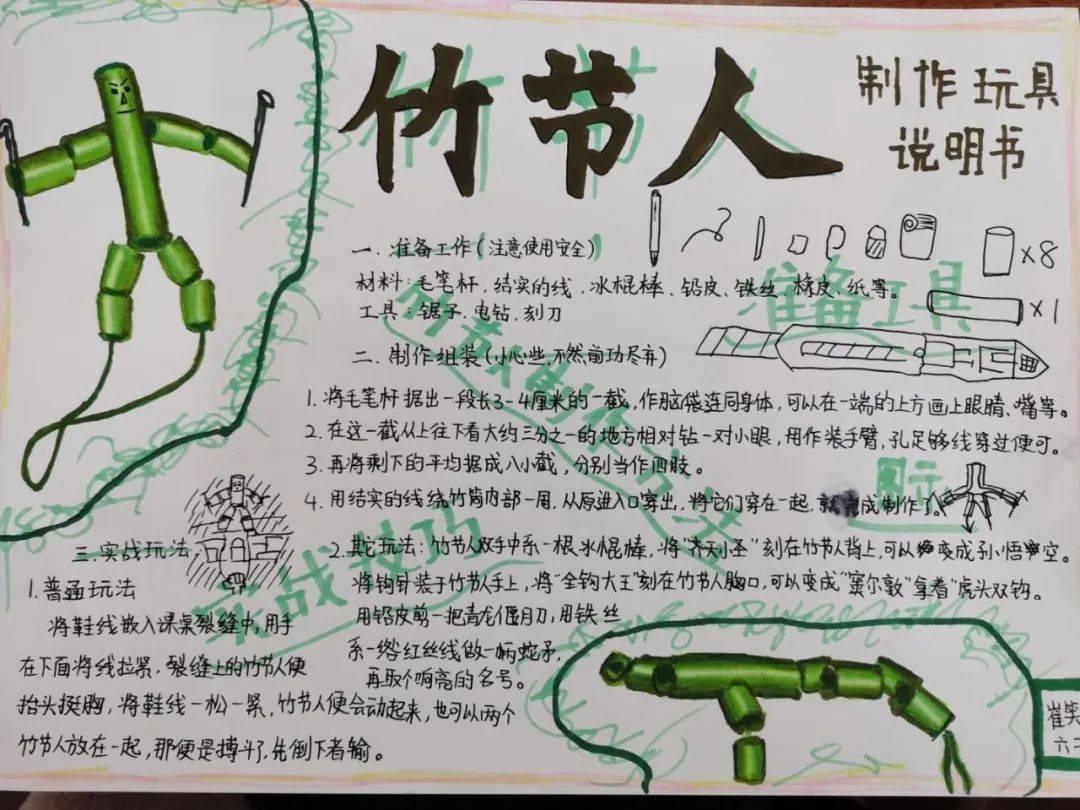 竹节人
制作玩具
说明书
一.准备工作(注意使用安全)
材料:毛笔杆、结实的线、冰棍棒、铅皮、铁丝、橡皮、纸等。
工具:锯子.电钻.刻刀
×8
×1
准备工具
二.制作组装(小心些,不然前功尽弃)
1.将毛笔杆据出一段长3-4厘米的一截,作脑袋连同身体,可以在一端的上方画上眼睛、嘴等。
2.在这一截从上往下看大约三分之一的地方相对钻一对小眼,用作装手臂,孔足够线穿过便可。
3.再将剩下的平均据成八小截,分别当作四肢。
4.用结实的线绕竹筒内部一周,从原进入口穿出,将它们穿在一起,就完成制作了。
图示
竹节人制作方法
实战技巧
三.实战玩法
1.普通玩法
将鞋线嵌入课桌裂缝中,用手
在下面将线拉紧,裂缝上的竹节人便
抬头挺胸,将鞋线一松一紧,竹节人便会动起来,也可以两个
竹节人放在一起,那便是搏斗了,先倒下者输。
2.其它玩法:竹节人双手中系一根冰棍棒,将“齐天小圣”刻在竹节人背上,可以变成孙悟空。
将钩针装于竹节人手上,将“金钩大王”刻在竹节人胸口,可以变成“窦尔敦”拿着“虎头双钩。
用铅皮剪一把青龙偃月刀,用铁丝
系一绺红丝线做一柄蛇矛,
再取个响亮的名号。
崔笑
六二